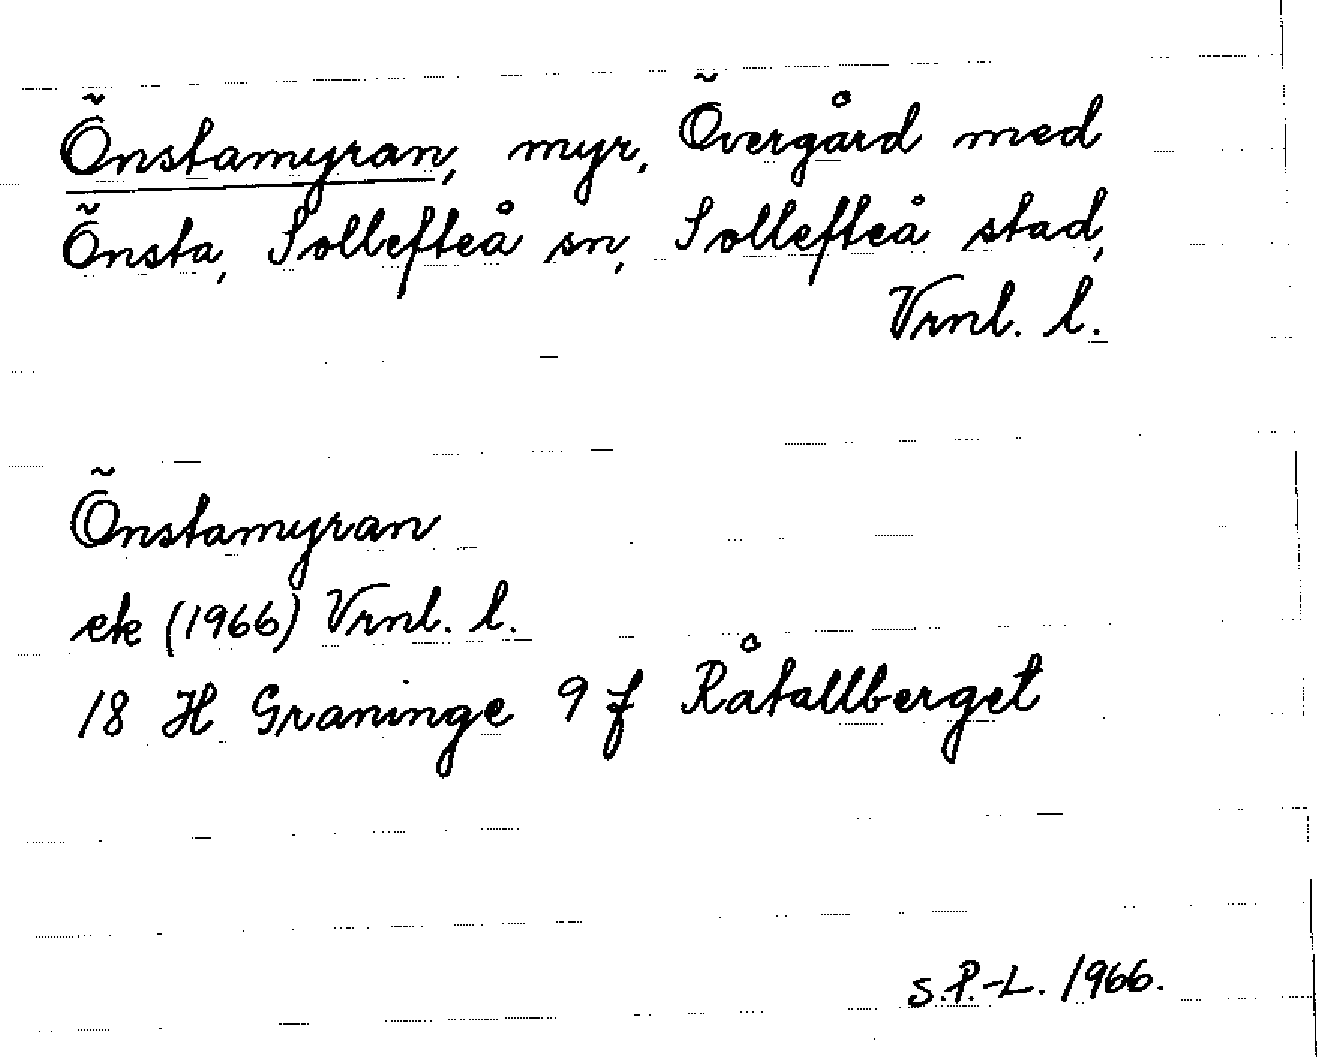 Önstamyran, myr, Övergård med
Önsta, Sollefteå sn, Sollefteå stad,
Vrnl. l.
Önstamyran
ek (1966) Vrnl. l.
18 H Graninge 9 f Råtallberget
S.P.-L. 1966.